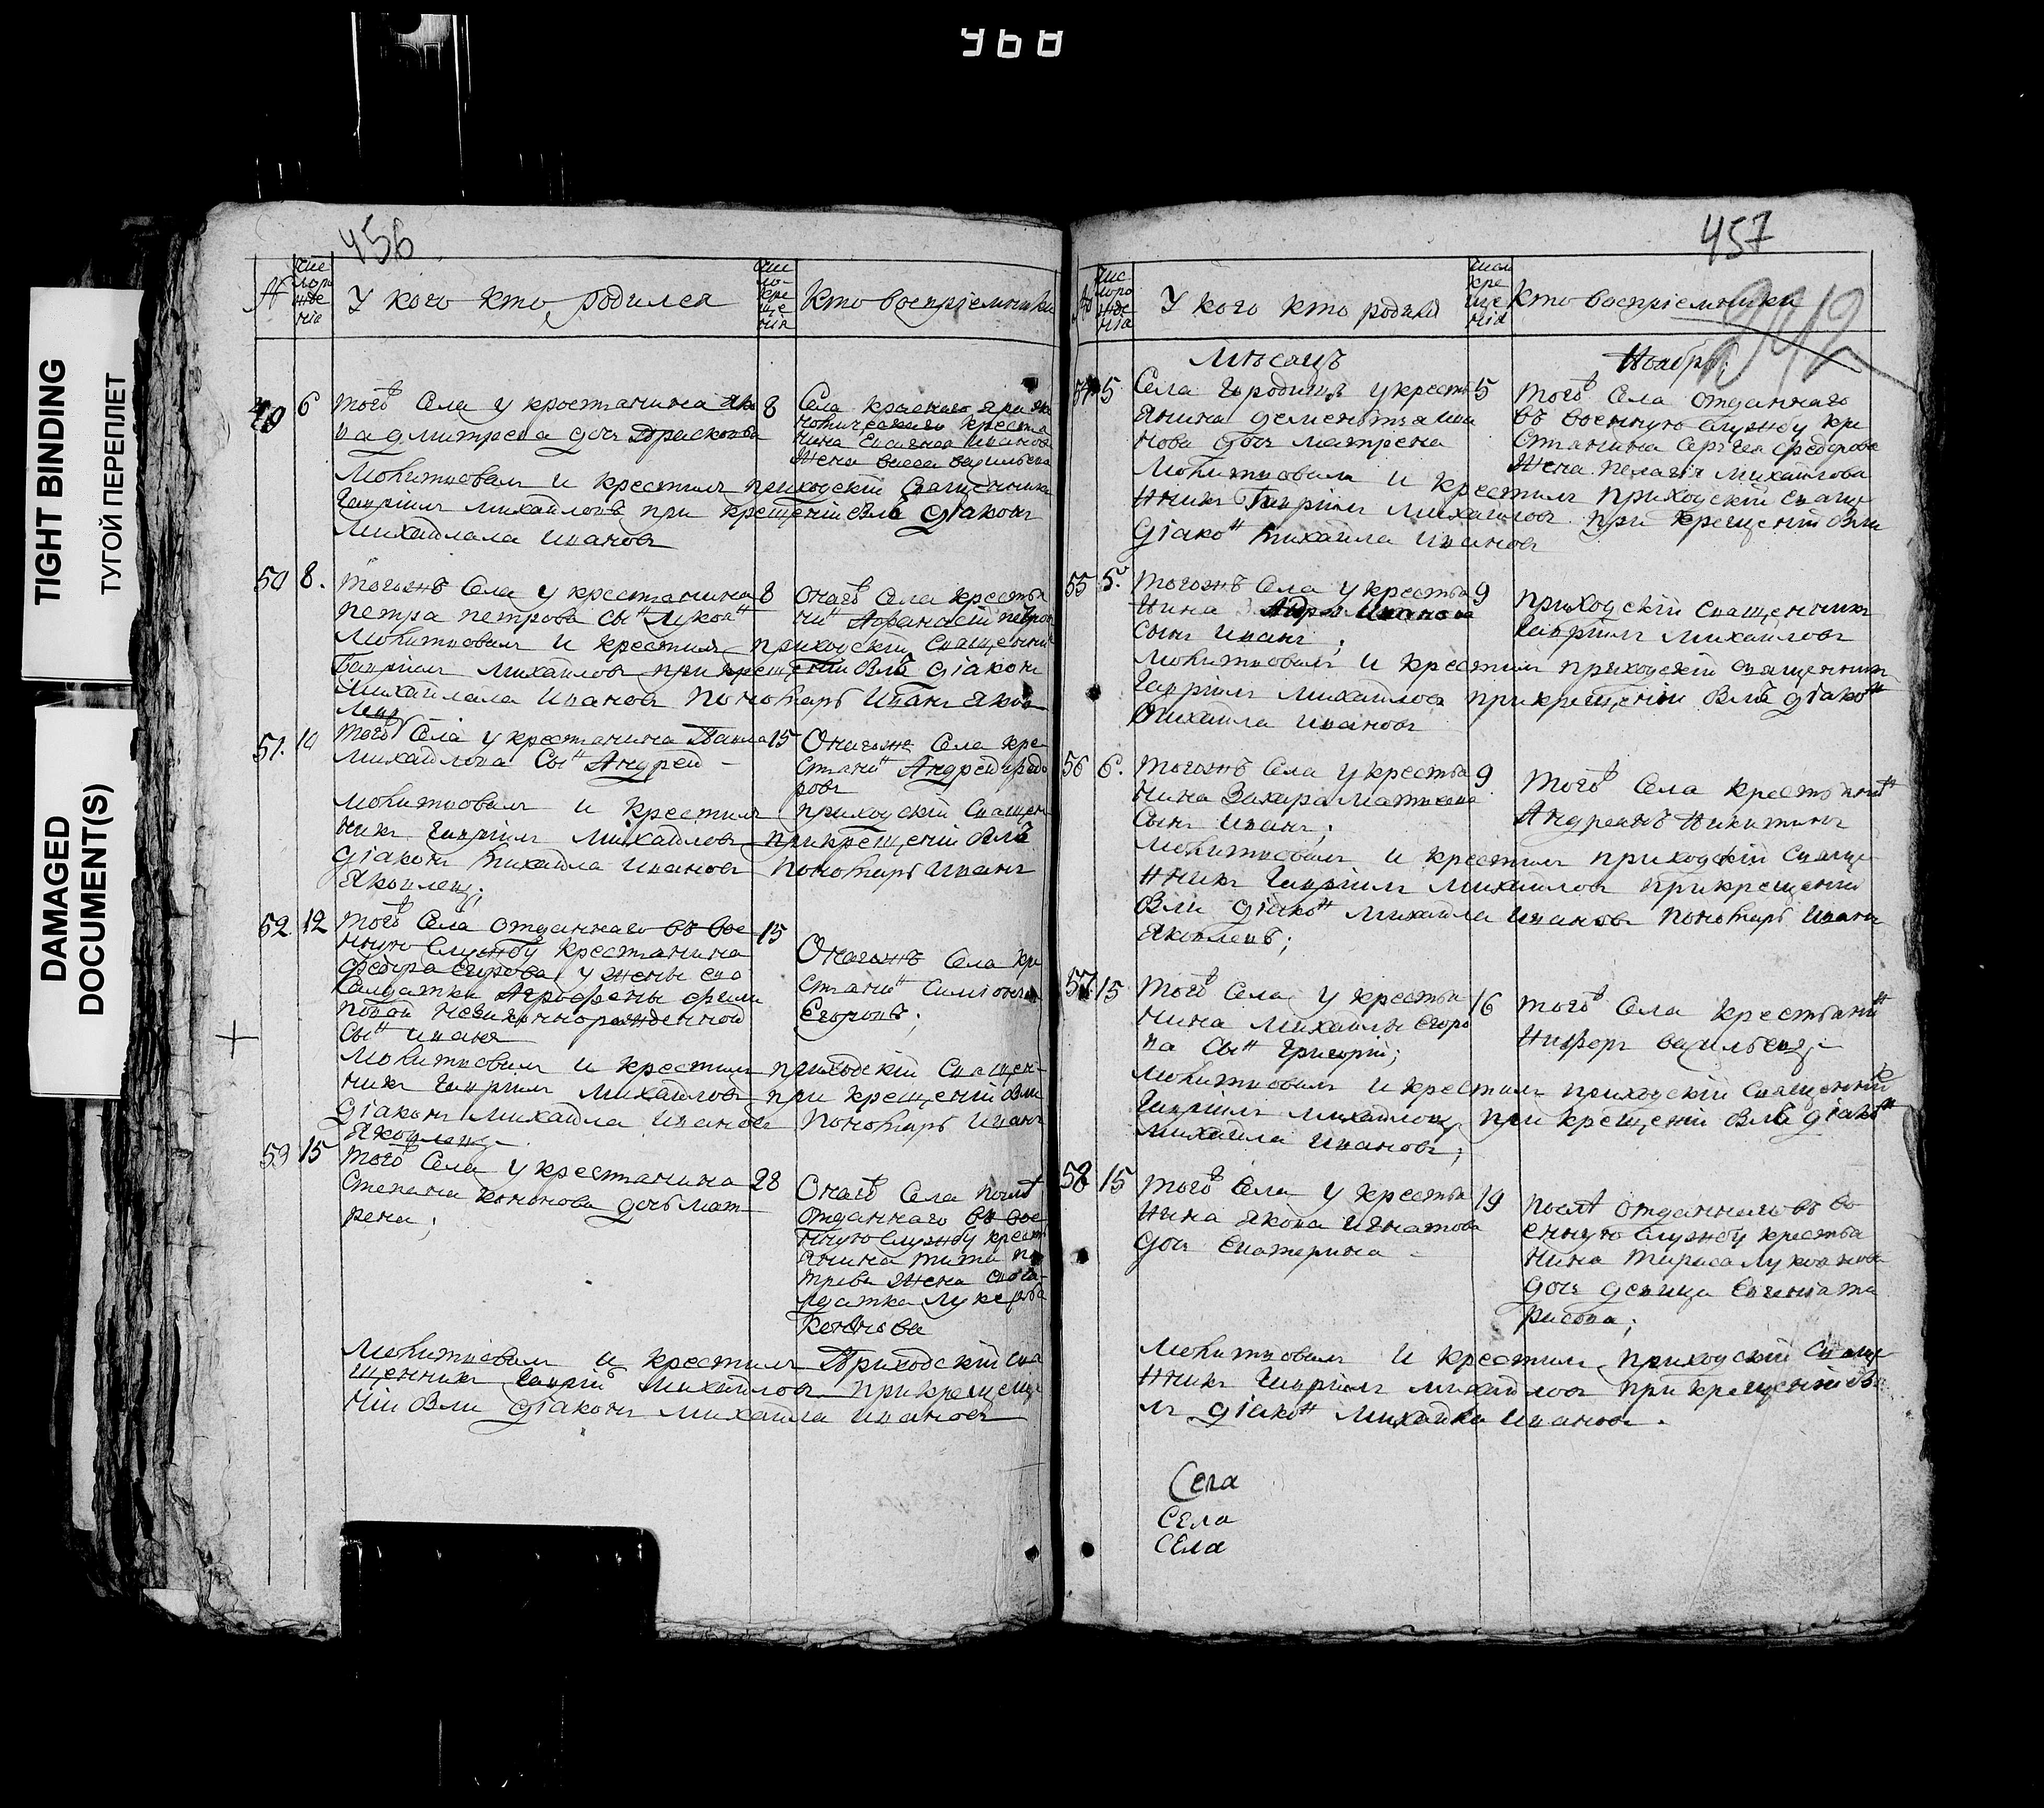 460
TIGHT BINDING
ТУГОЙ ПЕРЕПЛЕТ
DAMAGED
DOCUMENT(S)
456
№
чис
ло ро
жде
нія
У кого кто родился
чис
ло
кре
ще
нія
Кто воспріемники
49 6 того Села у крестьянина
Дмитрева дочь Парасковья
8
Села
крестья
нина Иванова
жена Васильева
Молитвовалъ и крестилъ приходскій Священникъ
Гавріилъ Михайловъ при крещеніи былъ діаконъ
Михайла Ивановъ
50 8. тогожъ Села у крестьянина
петра петрова сынъ Лукоян
8
онаго Села крестья
нинъ Афанасій петров
Молитвовалъ и крестилъ приходскій Священник
Гавріилъ Михайловъ при крещеніи былъ діаконъ
Михайла Ивановъ Пономарь Иванъ Яков
левъ
51. 10 того Села у крестьянина Павла
Михайлова Сынъ Андрей
15
Онагоже Села кре
стьянинъ Андрей федо
ровъ
Молитвовалъ и крестилъ приходскій Священ
никъ Гавріилъ Михайловъ при крещеніи былъ
діаконъ Михайла Ивановъ Пономарь Иванъ
Яковлевъ;
52. 12 того Села отданнаго въ вое
нную службу крестьянина
федора Егорова у жены ево
Салдатки Агрофены фили
повой незаконнорожденной
Сынъ Иванъ
15
Онагожъ Села кре
стьянинъ Симіонъ
Егоровъ;
Молитвовалъ и крестилъ приходскій Священ
никъ Гавріилъ Михайловъ при крещеніи были
діаконъ Михайла Ивановъ Пономарь Иванъ
Яковлевъ
53 15 того Села у крестьянина
Степана Кононова дочь Мат
рена;
28
Онаго Села
отданнаго въ вое
нную службу крест
янина тита пе
трова жена сол
датка Лукерья
Молитвовалъ и крестилъ Приходскій Свя
щенникъ Гавріилъ Михайловъ при креще
ніи были діаконъ Михайла Ивановъ
457
242
№
чис
ло ро
жде
нія
У кого кто родился
число
кре
ще
нія
Кто воспріемники
Мѣсяцъ Ноябрь
54 5 Села Городищъ у крестъ
янина дементья Ива
нова дочь матрена
5
того Села отданнаго
въ военную службу кре
стьянина Сергея федорова
жена пелагія Михайлова
Молитвовалъ и крестилъ приходскій Свяще
нникъ Гавріилъ Михайловъ при крещеніи были
діаконъ Михайла Ивановъ
55 5. тогожъ Села у крестья
нина Иванова
сынъ Иванъ;
9
приходскій Священникъ
Гавріилъ Михайловъ
Молитвовалъ и крестилъ приходскій Священникъ
Гавріилъ Михайловъ при крещеніи былъ діаконъ
Михайла Ивановъ
56 6. тогожъ Села у крестья
нина Захара Матвеева
Сынъ Иванъ;
9.
того Села крестьянинъ
Андреянъ Никитинъ
Молитвовалъ и крестилъ приходскій Свяще
нникъ Гавріилъ Михайловъ при крещеніи
были діаконъ Михайла Ивановъ пономарь Иванъ
Яковлевъ;
57 15 того Села у крестья
нина Михайлы Егоро
ва Сынъ Григорій;
16
того Села крестьянинъ
Никифоръ Васильевъ
Молитвовалъ и крестилъ приходскій Священникъ
Гавріилъ Михайловъ при крещеніи былъ діаконъ
Михайла Ивановъ;
58 15 того Села у крестья
нина Якова Игнатова
дочь Екатерина
19
отданнаго въ во
енную службу крестья
нина тараса Лукоянова
дочь девица Евгенія та
расова;
Молитвовалъ и крестилъ приходскій Свяще
нникъ Гавріилъ Михайловъ при крещеніи бы
лъ діаконъ Михайла Ивановъ.
Села
Села
Села